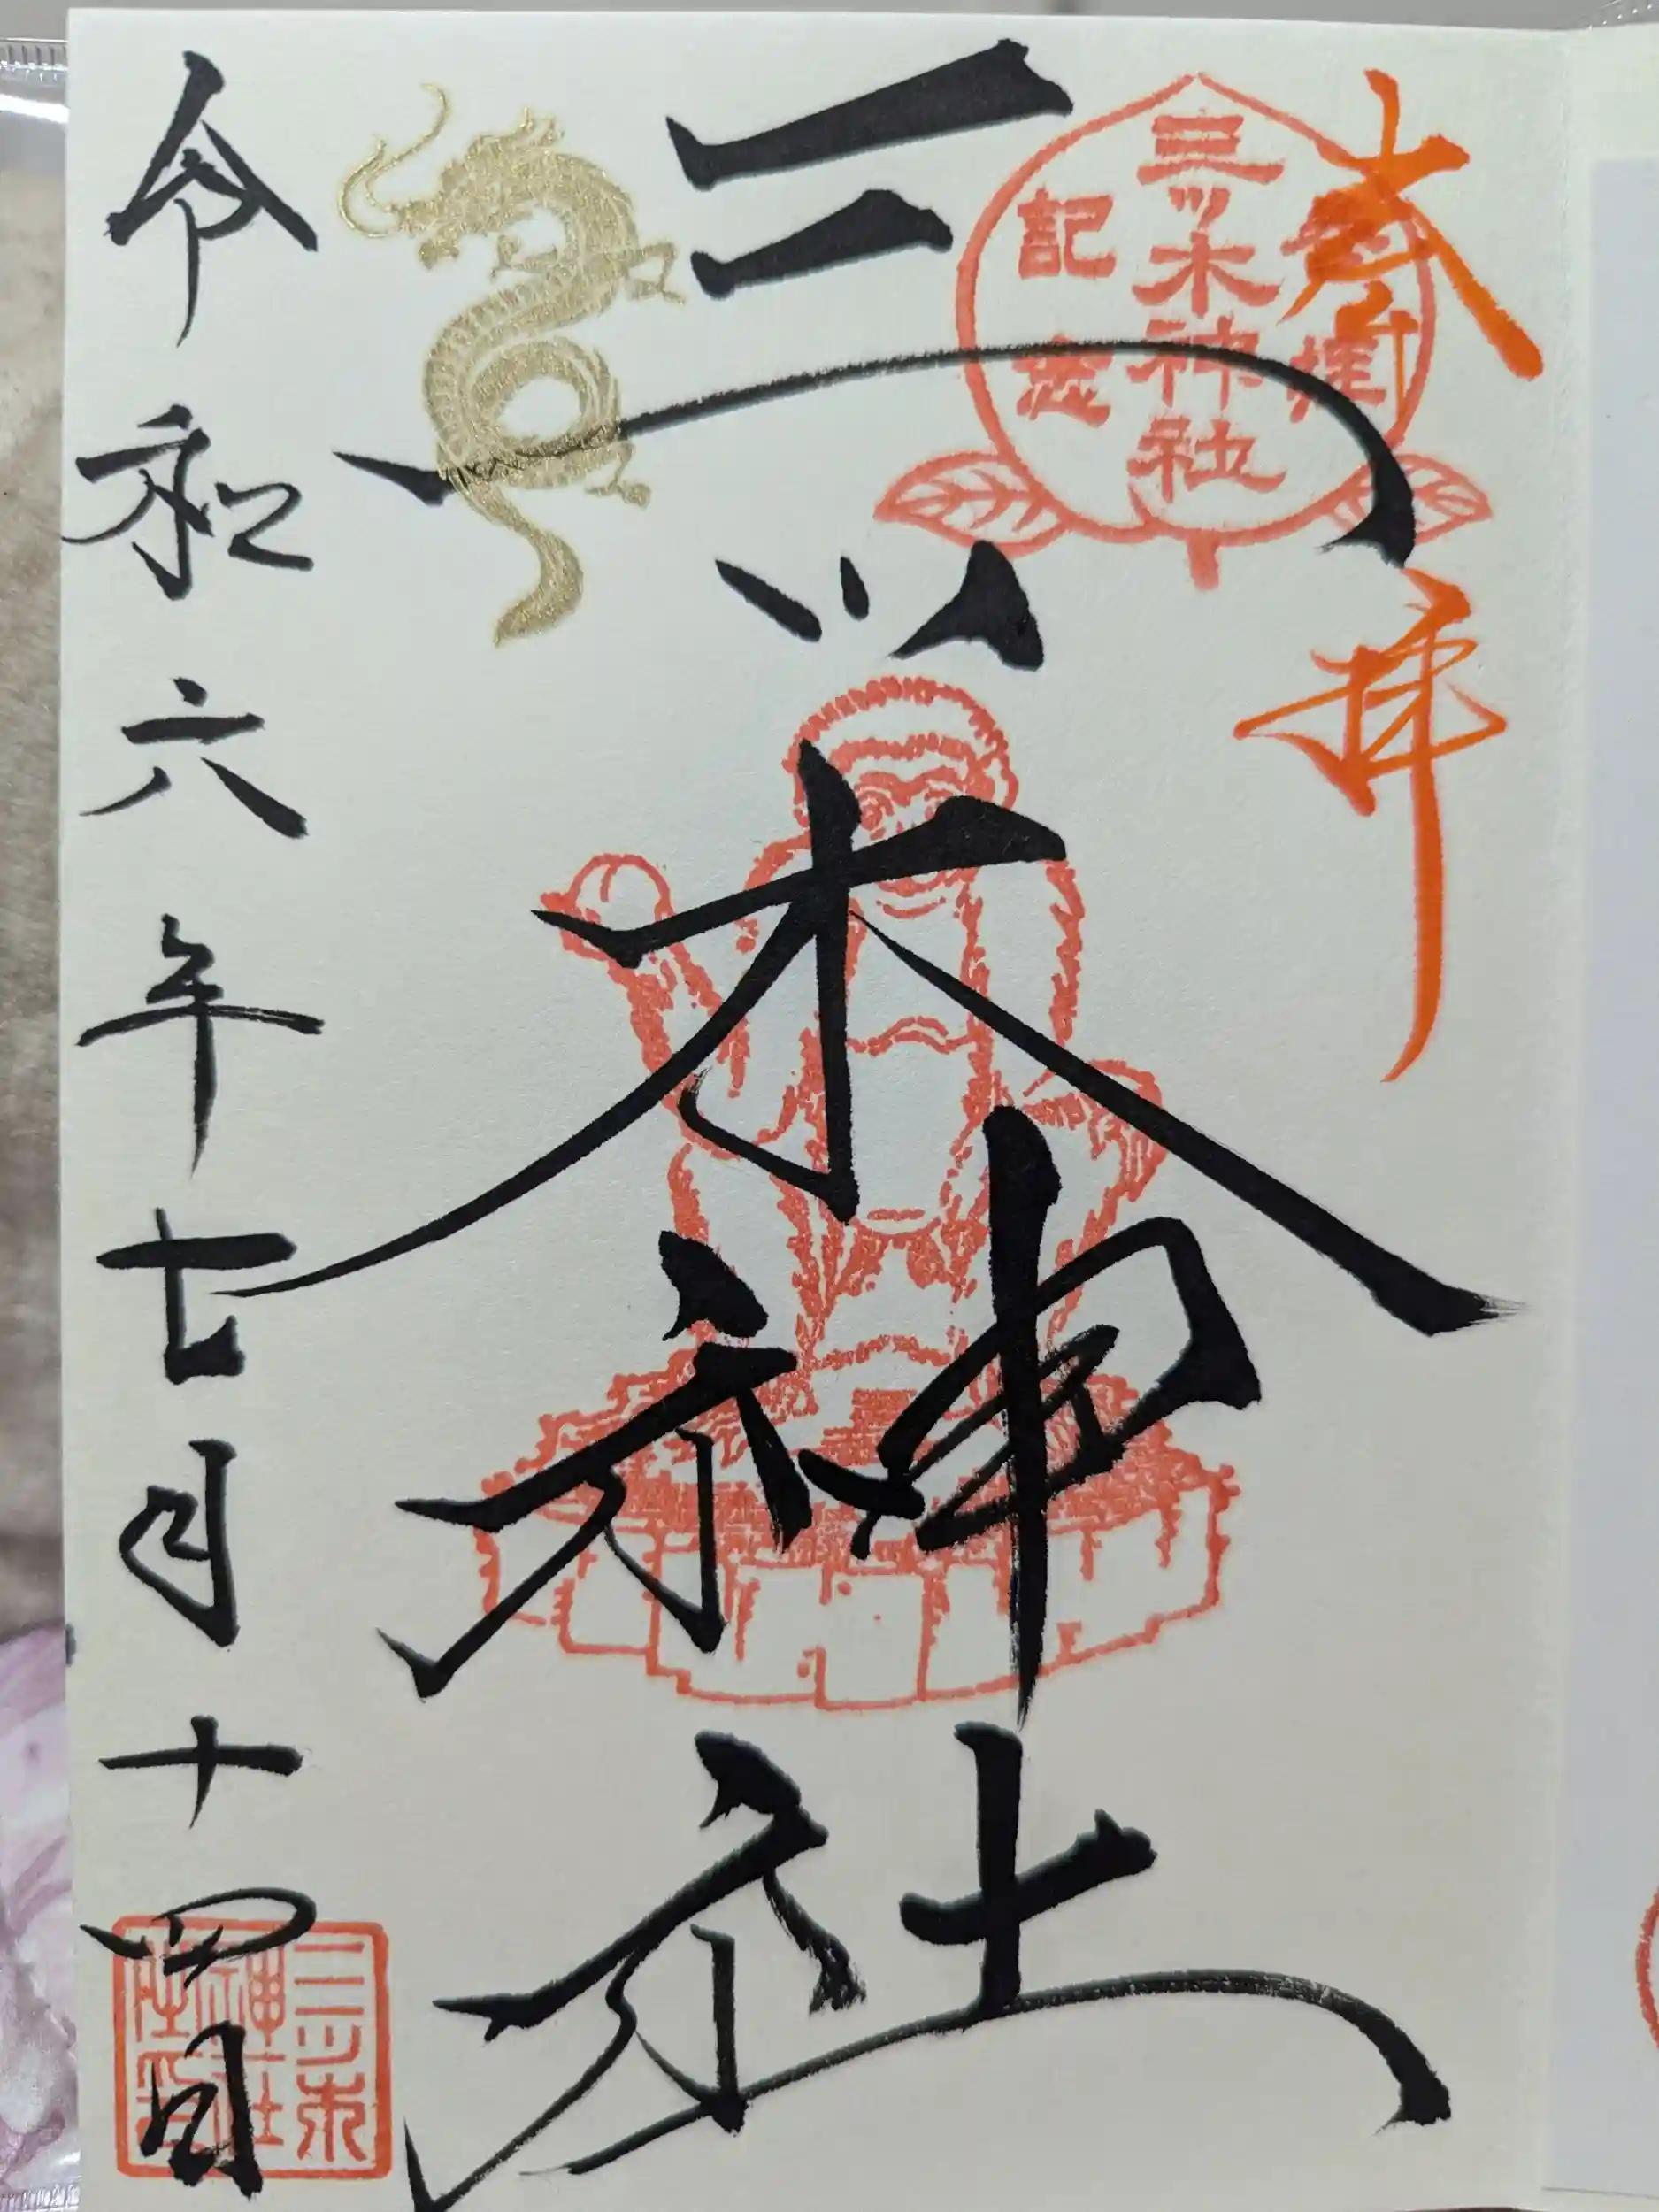 奉拝
三ッ木神社
参拝
記念
三ッ木神社
令和六年七月十四日
三ツ木
神社